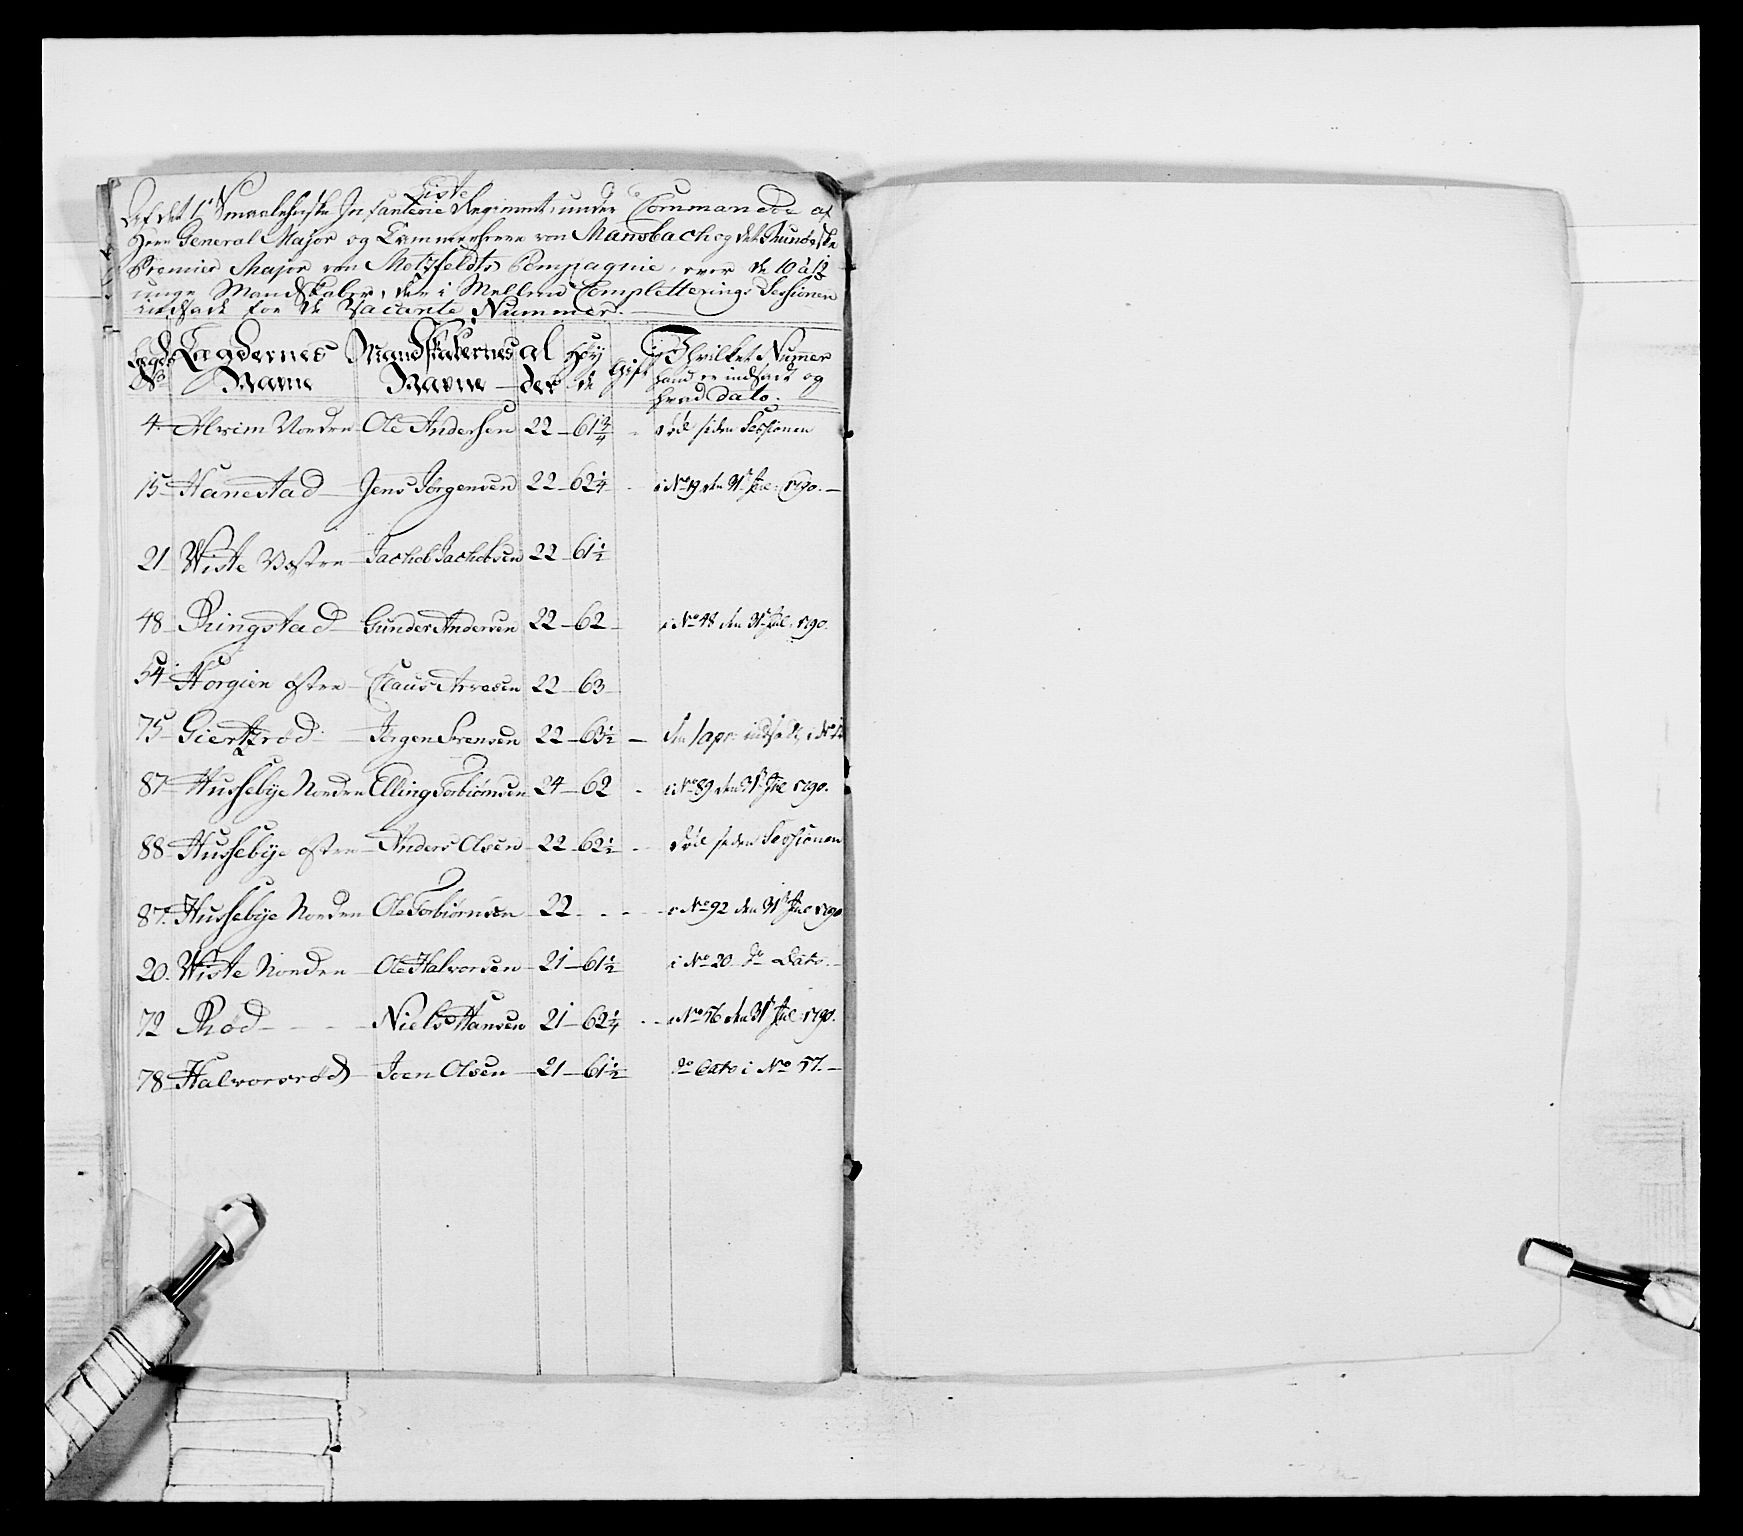 Liste
Af det 1te Smaalehnske Infanterie Regiment, under Commando af
Herr General Major og Cammerherre von Mansbach og det
Premier Major von Motzfeldts Compagnie, over de 10 à 12
unge Mandskaber, der i Mellem Completterings Sessionen
indsadt for de Vacante Nummer.
Lægds No Lagdernes Navne Mandskabernes Navne alder Høyde Gift i Hvilket Numer hand er indsadt og hvad Dato.
4. Alvim Norden Ole Andersen 22 61 3/4 død siden Sessionen
15 Hanestad Jens Jørgensen 22 62 1/4 i No 19 den 31te Jul: 1790.
21 Wiste Vestre Jachob Jachobsen 22 61 1/2
48 Ringstad Gunder Andersen 22 62 i No 48 den 31te Jul: 1790.
54 Horgien østre Claus Arvesen 22 63
75 Giertzrød Jørgen Sørensen 22 63 1/2 den 1 apr: indsadt i No
87 Hussebye Norden Elling Torbiørnsen 24 62 i No 89 den 31te Jul 1790.
88 Hussebye østre Anders Olsen 22 62 1/2 død siden Sessionen
87. Hussebye Norden Ole Torbiørnsen 22 i No 92 den 31te Jul 1790
20. Wiste Norden Ole Halvorsen 21 61 1/2 i No 20 do Dato.
72 Rød Niels Hansen 21 62 1/4 i No 76 den 31te Jul: 1790.
78 Halvorsrød Joen Olsen 21 61 1/2 do Dato i No 57.